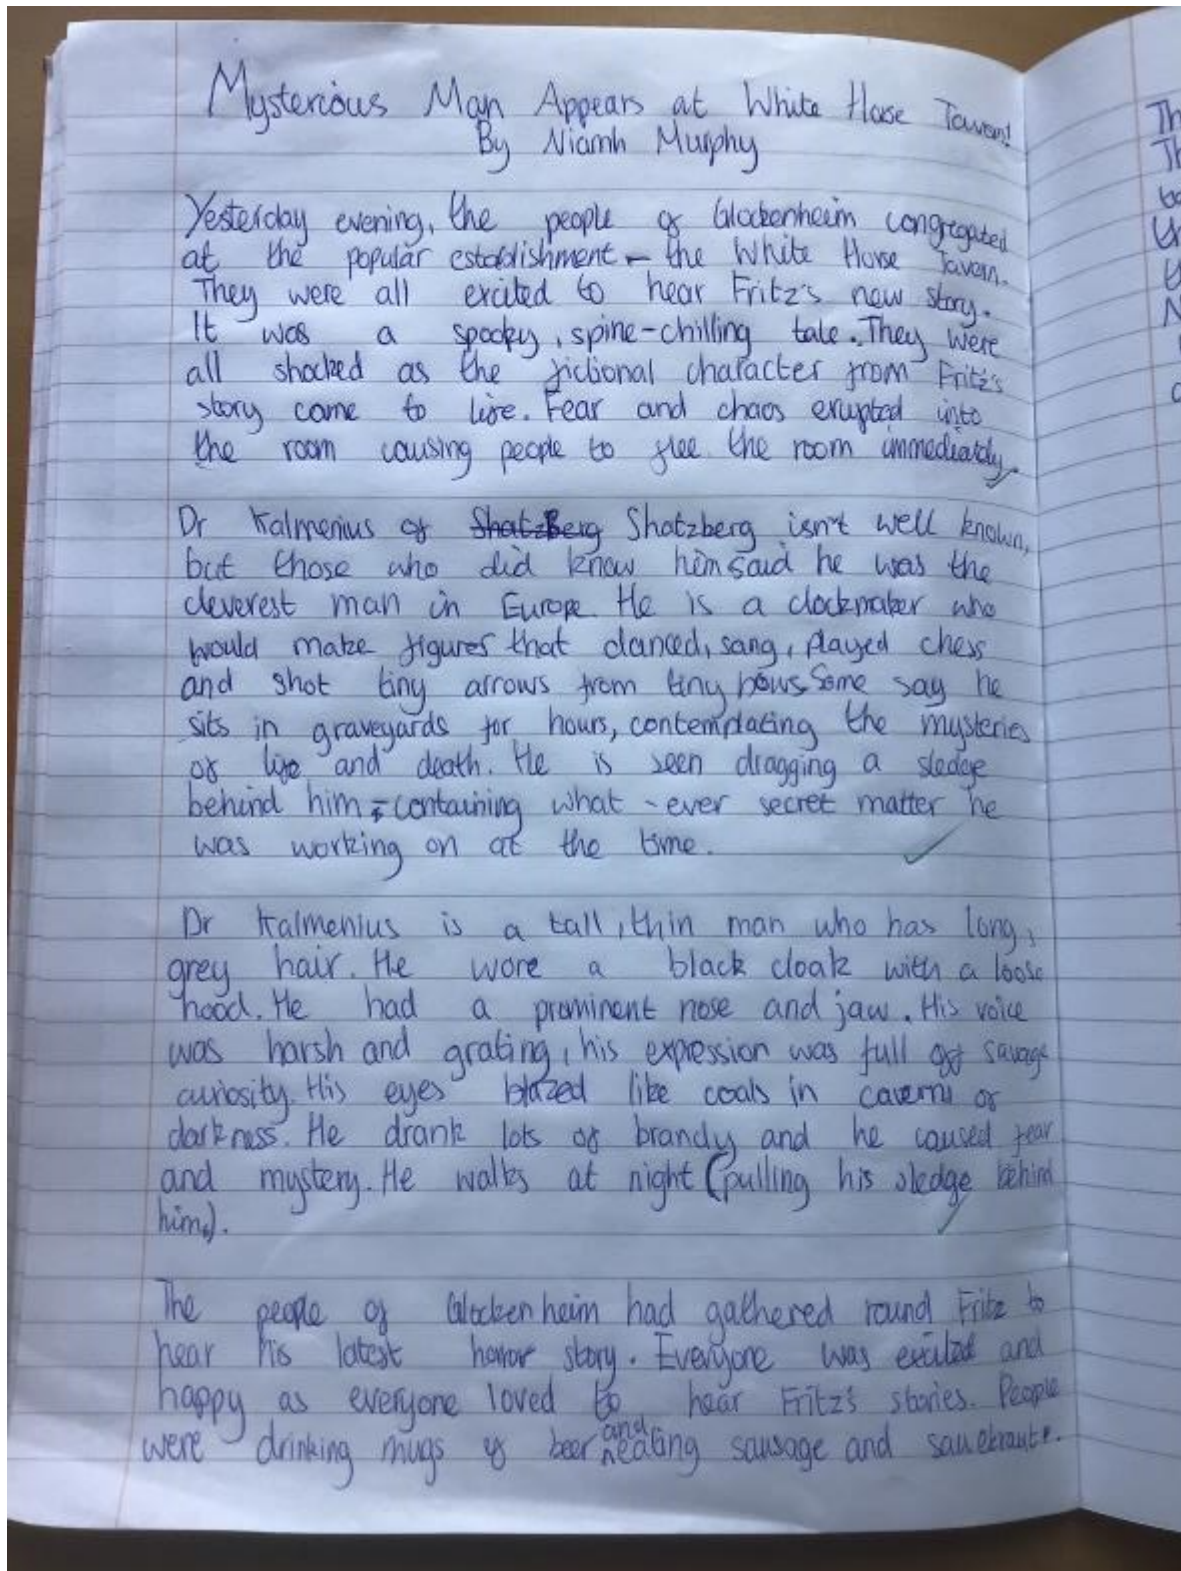 Mysterious Man Appears at White Horse Tavern!
By Niamh Murphy
Yesterday evening, the people of Glockenheim congregated
at the popular establishment - the White Horse Tavern.
They were all excited to hear Fritz's new story.
It was a spooky, spine-chilling tale. They were
all shocked as the fictional character from Fritz's
story came to life. Fear and chaos erupted into
the room causing people to flee the room immediately.
Dr Kalmenius of Shatzberg Shatzberg isn't well known,
but those who did know him said he was the
cleverest man in Europe. He is a clockmaker who
would make figures that danced, sang, played chess
and shot tiny arrows from tiny bows. Some say he
sits in graveyards for hours, contemplating the mysteries
of life and death. He is seen dragging a sledge
behind him - containing what-ever secret matter he
was working on at the time.
Dr Kalmenius is a tall, thin man who has long,
grey hair. He wore a black cloak with a loose
hood. He had a prominent nose and jaw. His voice
was harsh and grating, his expression was full of savage
curiosity. His eyes blazed like coals in caverns of
darkness. He drank lots of brandy and he caused fear
and mystery. He walks at night (pulling his sledge behind
him.).
The people of Glockenheim had gathered round Fritz to
hear his latest horror story. Everyone was excited and
happy as everyone loved to hear Fritz's stories. People
were drinking mugs of beer and eating sausage and